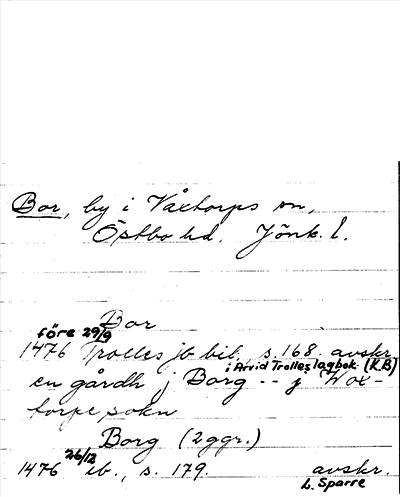 Bor, by i Våxtorps sn,
Östbo hd. Jönk. l.
Bor
före 29/9
1476 Trolles jb bil, s. 168. avskr.
i Arvid Trolles lagbok (K.B)
en gårdh j Borg -- j Wox-
torpe sokn
Borg (2 ggr.)
26/12
1476 ib., s. 179. avskr.
L. Sparre